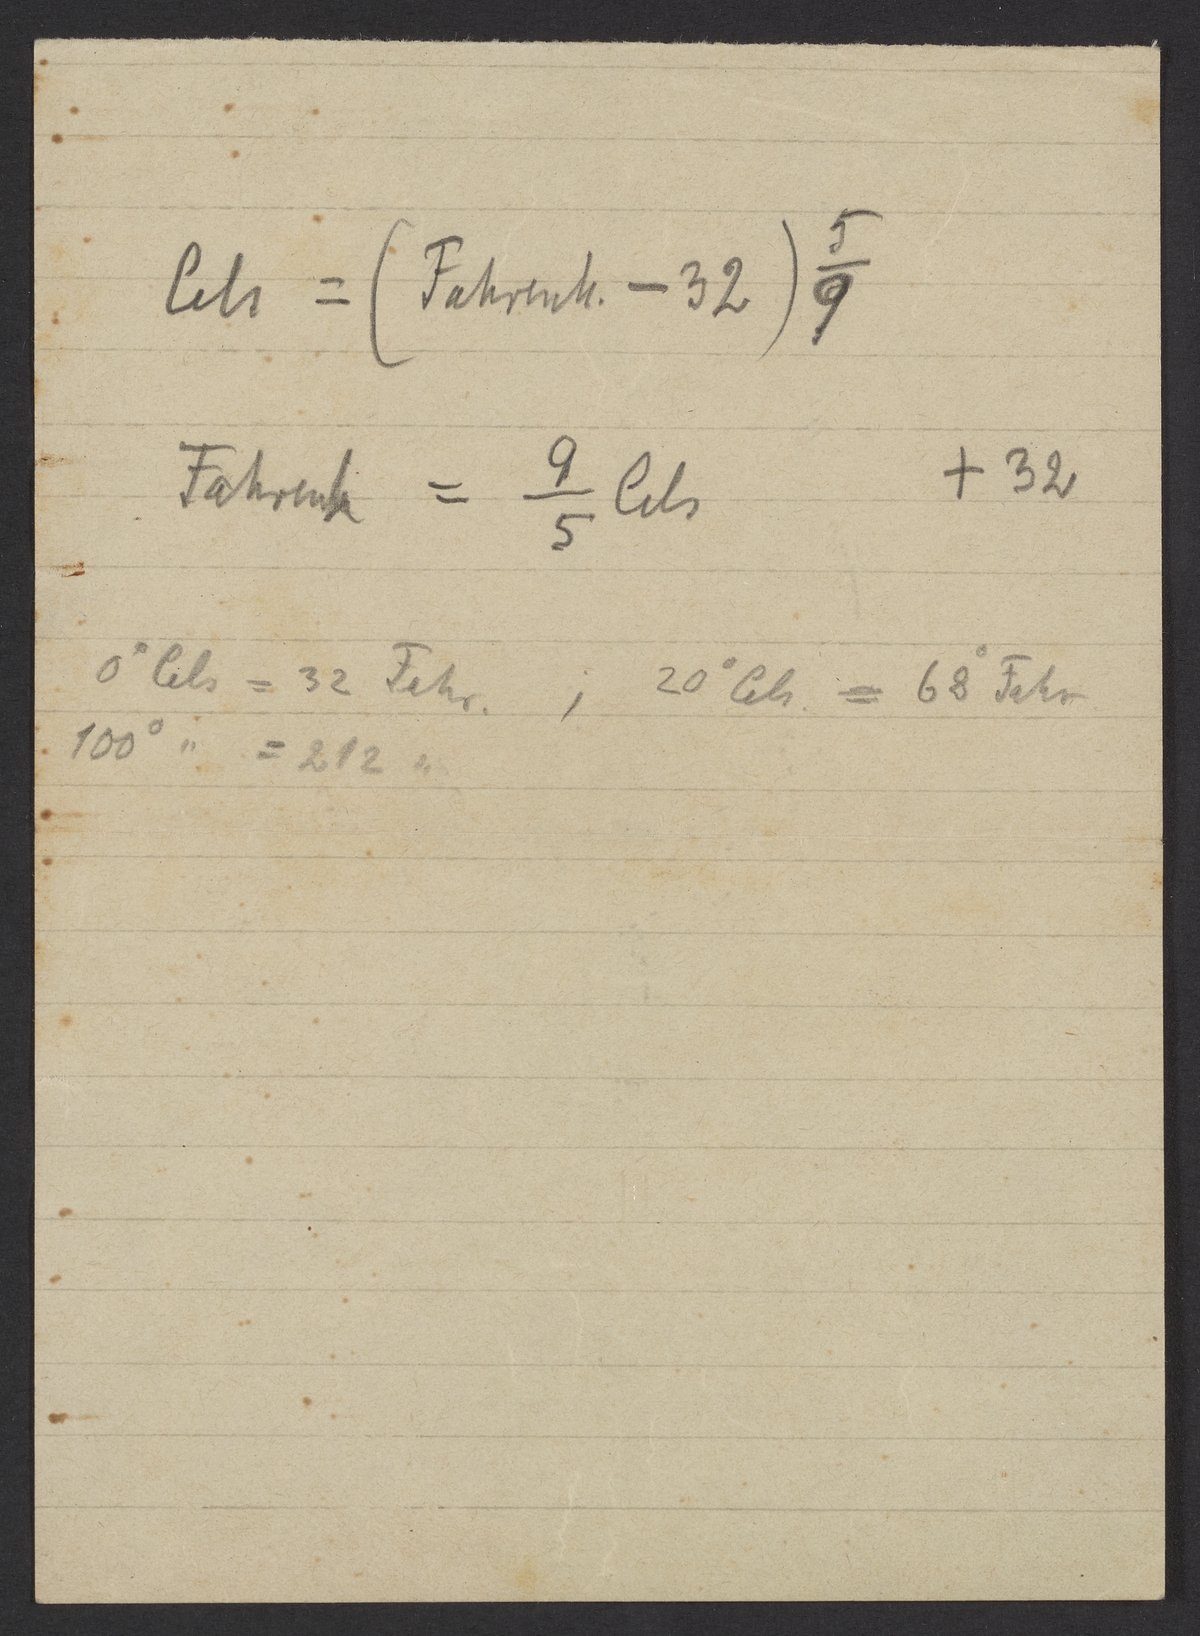 Cels = (Fahrenh. – 32) 5/9
Fahrenh = 9/5 Cels + 32
0° Cels = 32 Fahr. ; 20° Cels. = 68° Fahr
100° " = 212 "